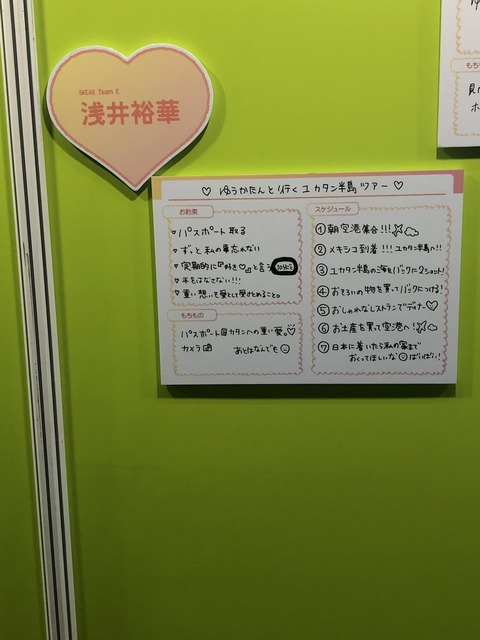 SKE48 Team E
浅井裕華
♡ ゆうかたんと行くユカタン半島ツアー ♡
お約束
♥ パスポート取る
♥ ずっと私の事忘れない
♥ 定期的に『好き♡』と言う 10分に5
♥ 手をはなさない!!!
♥ 重い想いも愛として受けとめること。
もちもの
パスポート カタンへの重い愛。♡
カメラ あとはなんでも
スケジュール
① 朝空港集合!!!
② メキシコ到着!!! ユカタン半島へ!!
③ ユカタン半島の海をバックに2ショット!
④ おそろいの物を買ってバックにつける!
⑤ おしゃれなレストランでディナー♡
⑥ お土産を買って空港へ!
⑦ 日本に着いたら私の家まで
おくってほしいな ばいばい!
もち